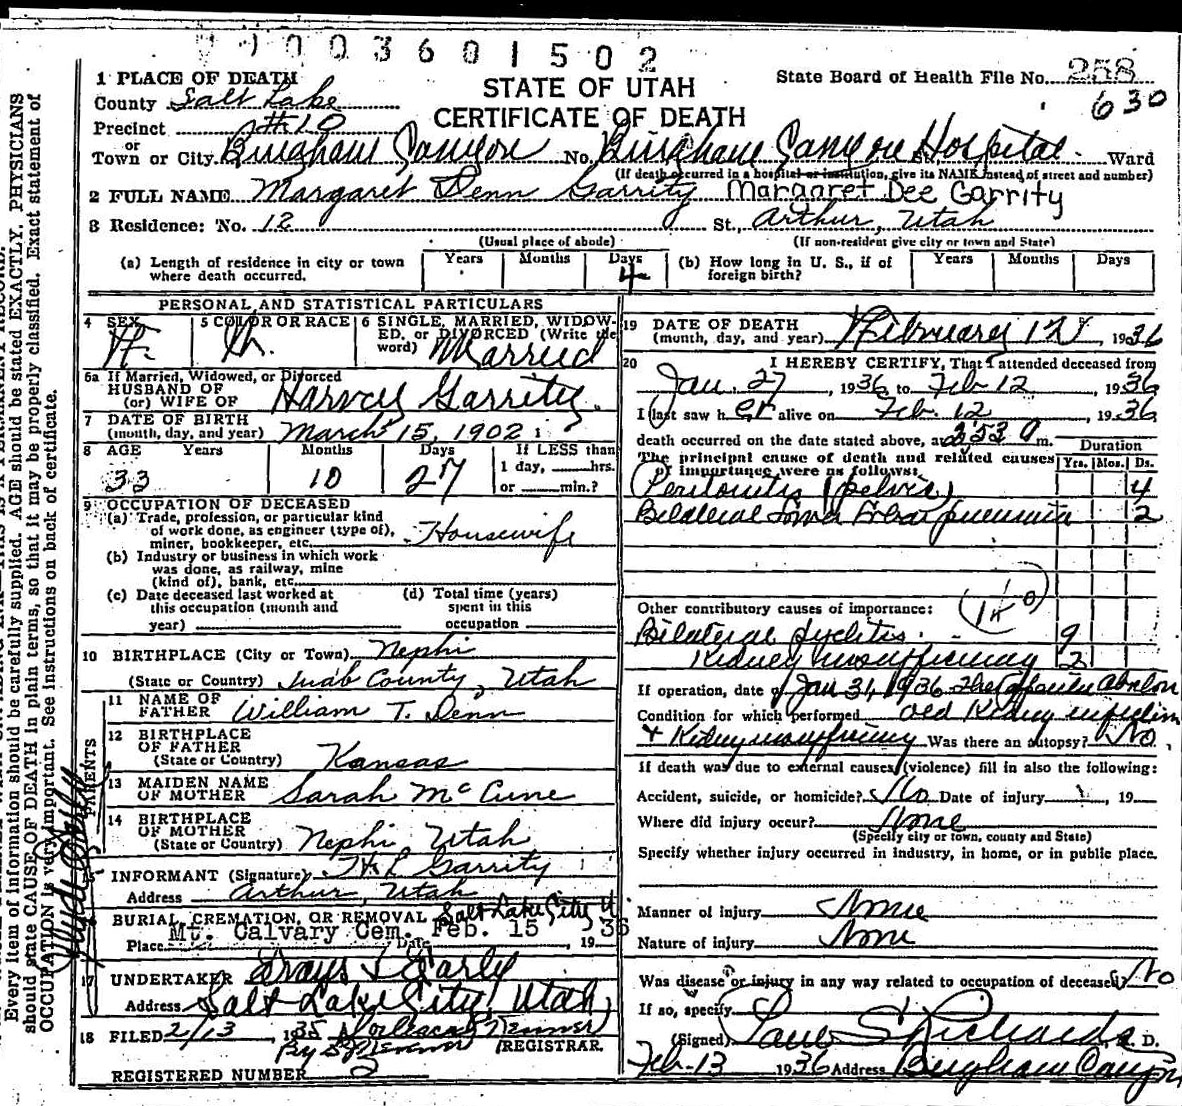 1003601502
1 PLACE OF DEATH
STATE OF UTAH
CERTIFICATE OF DEATH
State Board of Health File No. 258
630
County Salt Lake
Precinct #10
or
Town or City Bingham Canyon No. Bingham Canyon Hospital St., Ward
(If death occurred in a hospital or institution, give its NAME instead of street and number)
2 FULL NAME Margaret Denn Garrity Margaret Dee Garrity
3 Residence: No. 12 St., Arthur, Utah
(Usual place of abode) (If non-resident give city or town and State)
(a) Length of residence in city or town where death occurred. Years Months Days 4
(b) How long in U. S., if of foreign birth? Years Months Days
PERSONAL AND STATISTICAL PARTICULARS
4 SEX F.
5 COLOR OR RACE W.
6 SINGLE, MARRIED, WIDOWED, or DIVORCED (Write the word) Married
6a If Married, Widowed, or Divorced
HUSBAND OF
(or) WIFE OF Harvey Garrity
7 DATE OF BIRTH
(month, day, and year) March 15, 1902
8 AGE Years Months Days If LESS than
1 day, hrs.
or min.?
33 10 27
9 OCCUPATION OF DECEASED
(a) Trade, profession, or particular kind
of work done, as engineer (type of),
miner, bookkeeper, etc. Housewife
(b) Industry or business in which work
was done, as railway, mine
(kind of), bank, etc.
(c) Date deceased last worked at
this occupation (month and
year)
(d) Total time (years)
spent in this
occupation
10 BIRTHPLACE (City or Town) Nephi
(State or Country) Juab County, Utah
PARENTS
11 NAME OF
FATHER William T. Denn
12 BIRTHPLACE
OF FATHER
(State or Country) Kansas
13 MAIDEN NAME
OF MOTHER Sarah McCune
14 BIRTHPLACE
OF MOTHER
(State or Country) Nephi Utah
15 INFORMANT (Signature) H L Garrity
Address Arthur, Utah
BURIAL, CREMATION, OR REMOVAL Salt Lake City U
Place Mt. Calvary Cem. Date Feb. 15, 1936
17 UNDERTAKER
Address Salt Lake City, Utah
18 FILED 2/13, 1935
By
REGISTRAR.
REGISTERED NUMBER 2
19 DATE OF DEATH
(month, day, and year) February 12, 1936
20 I HEREBY CERTIFY, That I attended deceased from
Jan. 27, 1936 to Feb 12, 1936
I last saw her alive on Feb. 12, 1936
death occurred on the date stated above, at m.
The principal cause of death and related causes
of importance were as follows:
Duration
Yrs. Mos. Ds.
Peritonitis (pelvis) 4
Bilateral pneumonia 2
Other contributory causes of importance:
Bilateral pyelitis 9
Kidney insufficiency 2
If operation, date of Jan 31, 1936
Condition for which performed old Kidney infection
+ Kidney insufficiency Was there an autopsy? No
If death was due to external causes (violence) fill in also the following:
Accident, suicide, or homicide? No Date of injury, 19
Where did injury occur? None
(Specify city or town, county and State)
Specify whether injury occurred in industry, in home, or in public place.
Manner of injury None
Nature of injury None
Was disease or injury in any way related to occupation of deceased? No
If so, specify
(Signed) Paul S Richards M. D.
Feb-13 1936 Address Bingham Canyon
Every item of information should be carefully supplied. AGE should be stated EXACTLY. PHYSICIANS
should state CAUSE OF DEATH in plain terms, so that it may be properly classified. Exact statement of
OCCUPATION is very important. See instructions on back of certificate.